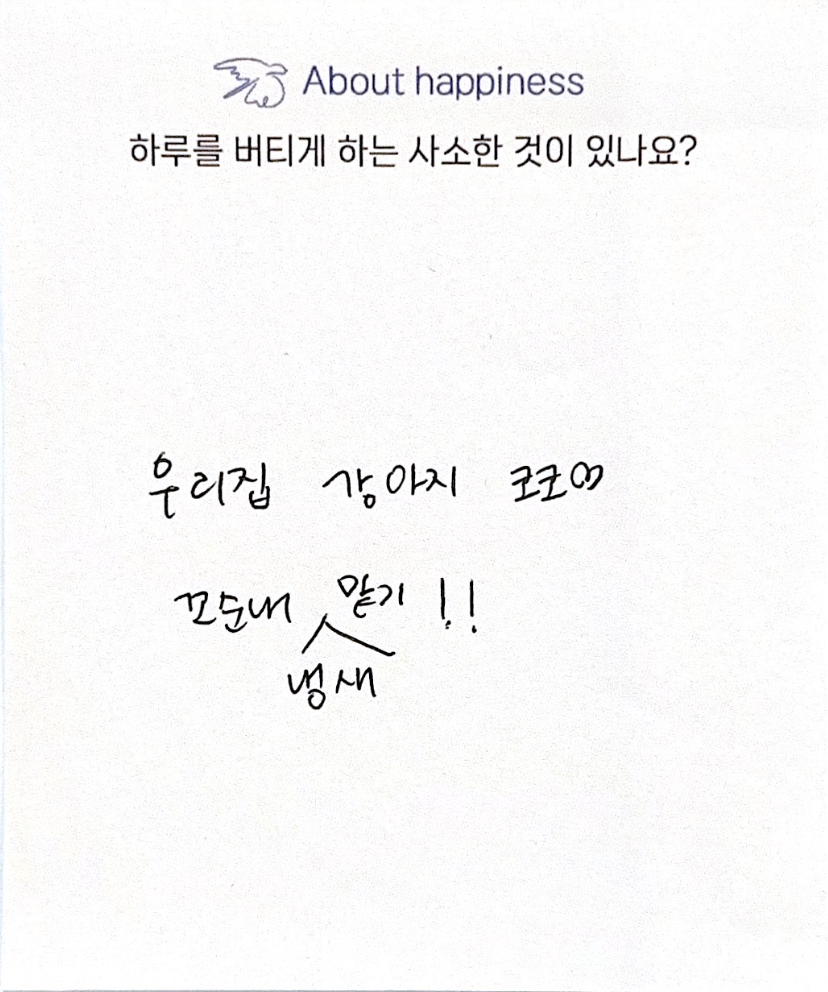 About happiness
하루를 버티게 하는 사소한 것이 있나요?
우리집 강아지 코코♡
꼬순내 맡기!!
냉새